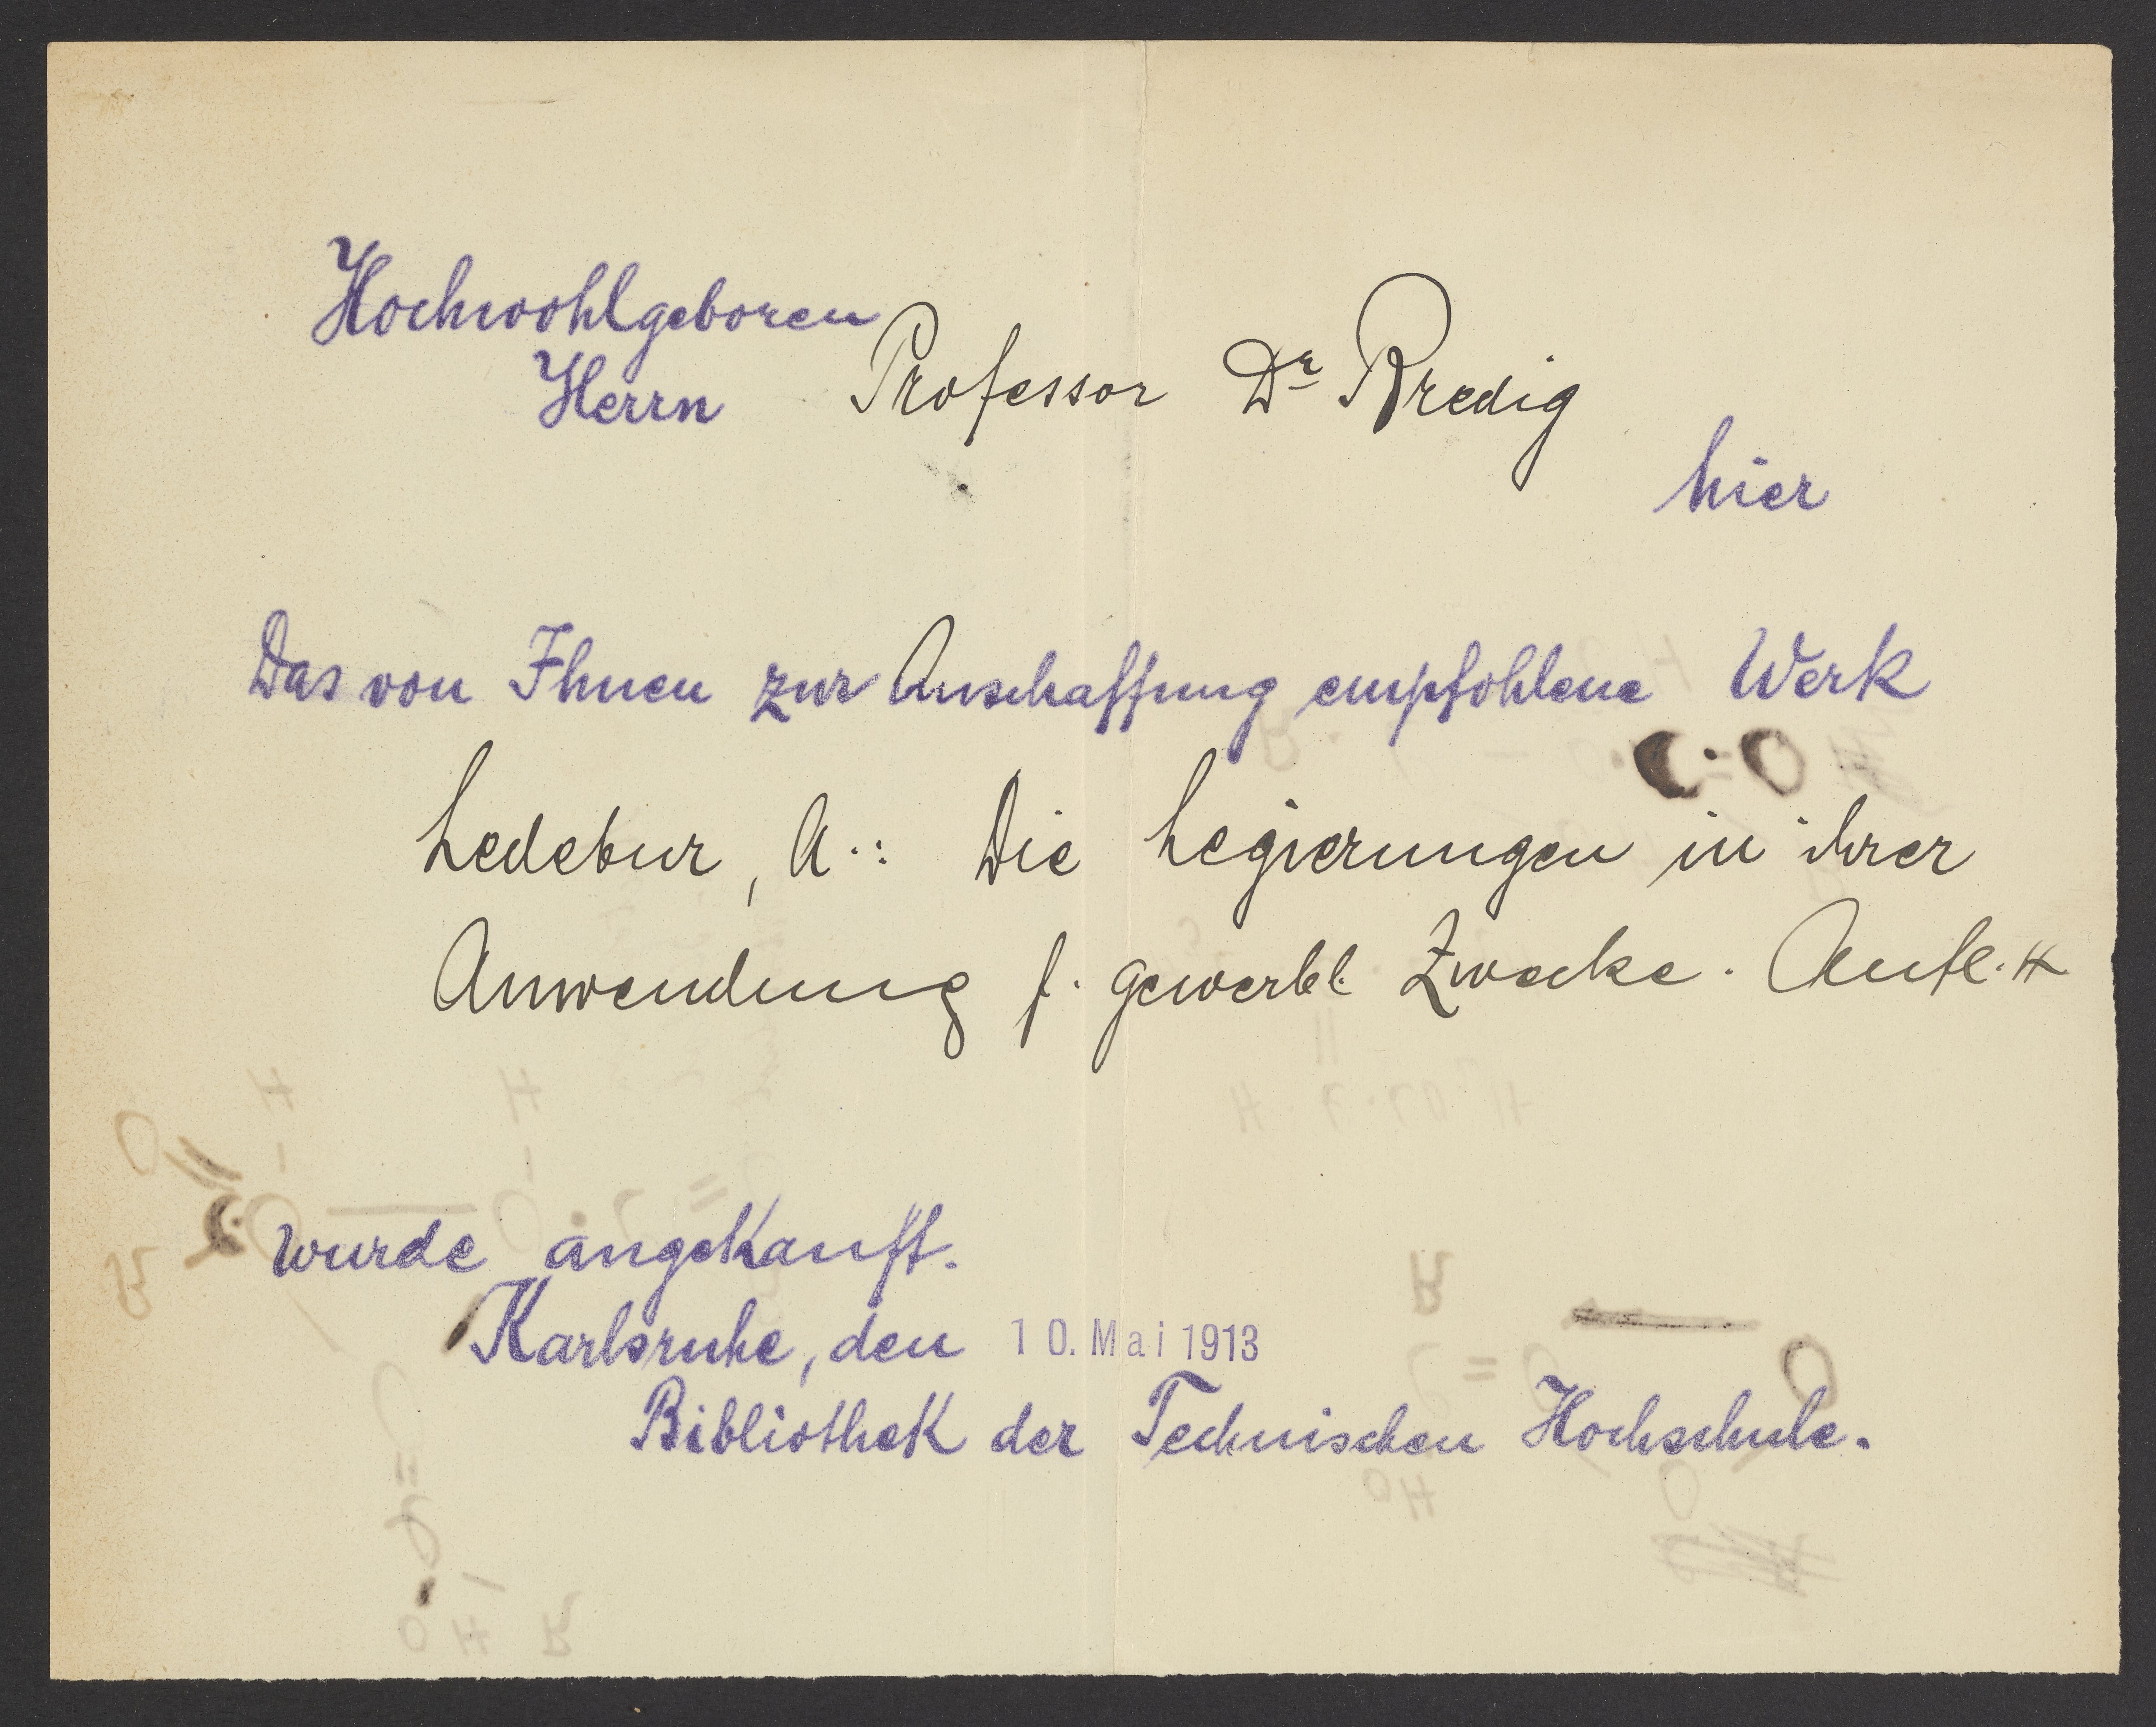 Hochwohlgeboren
Herrn Professor Dr Bredig
hier
Das von Ihnen zur Anschaffung empfohlene Werk
Ledebur, A.: Die Legierungen in ihrer
Anwendung f. gewerbl. Zwecke. Aufl. 4
wurde angekauft.
Karlsruhe, den 10. Mai 1913
Bibliothek der Technischen Hochschule.